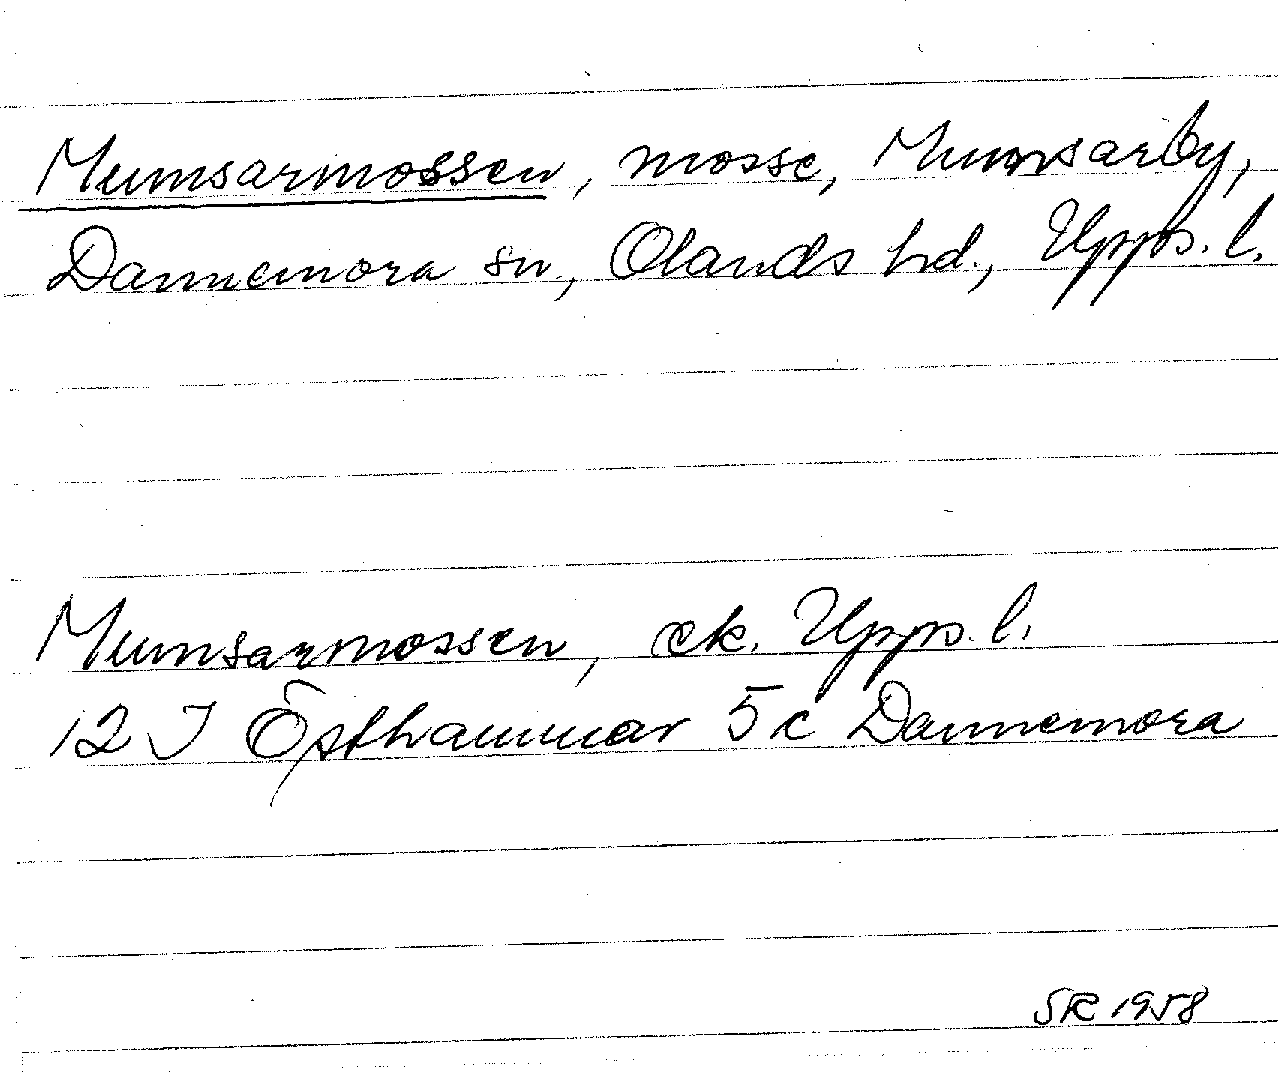 Mumsarmossen, mosse, Mumsarby,
Dannemora sn, Olands hd., Upps. l.
Mumsarmossen, ek. Upps. l.
12 I Östhammar 5 c Dannemora
SR 1958